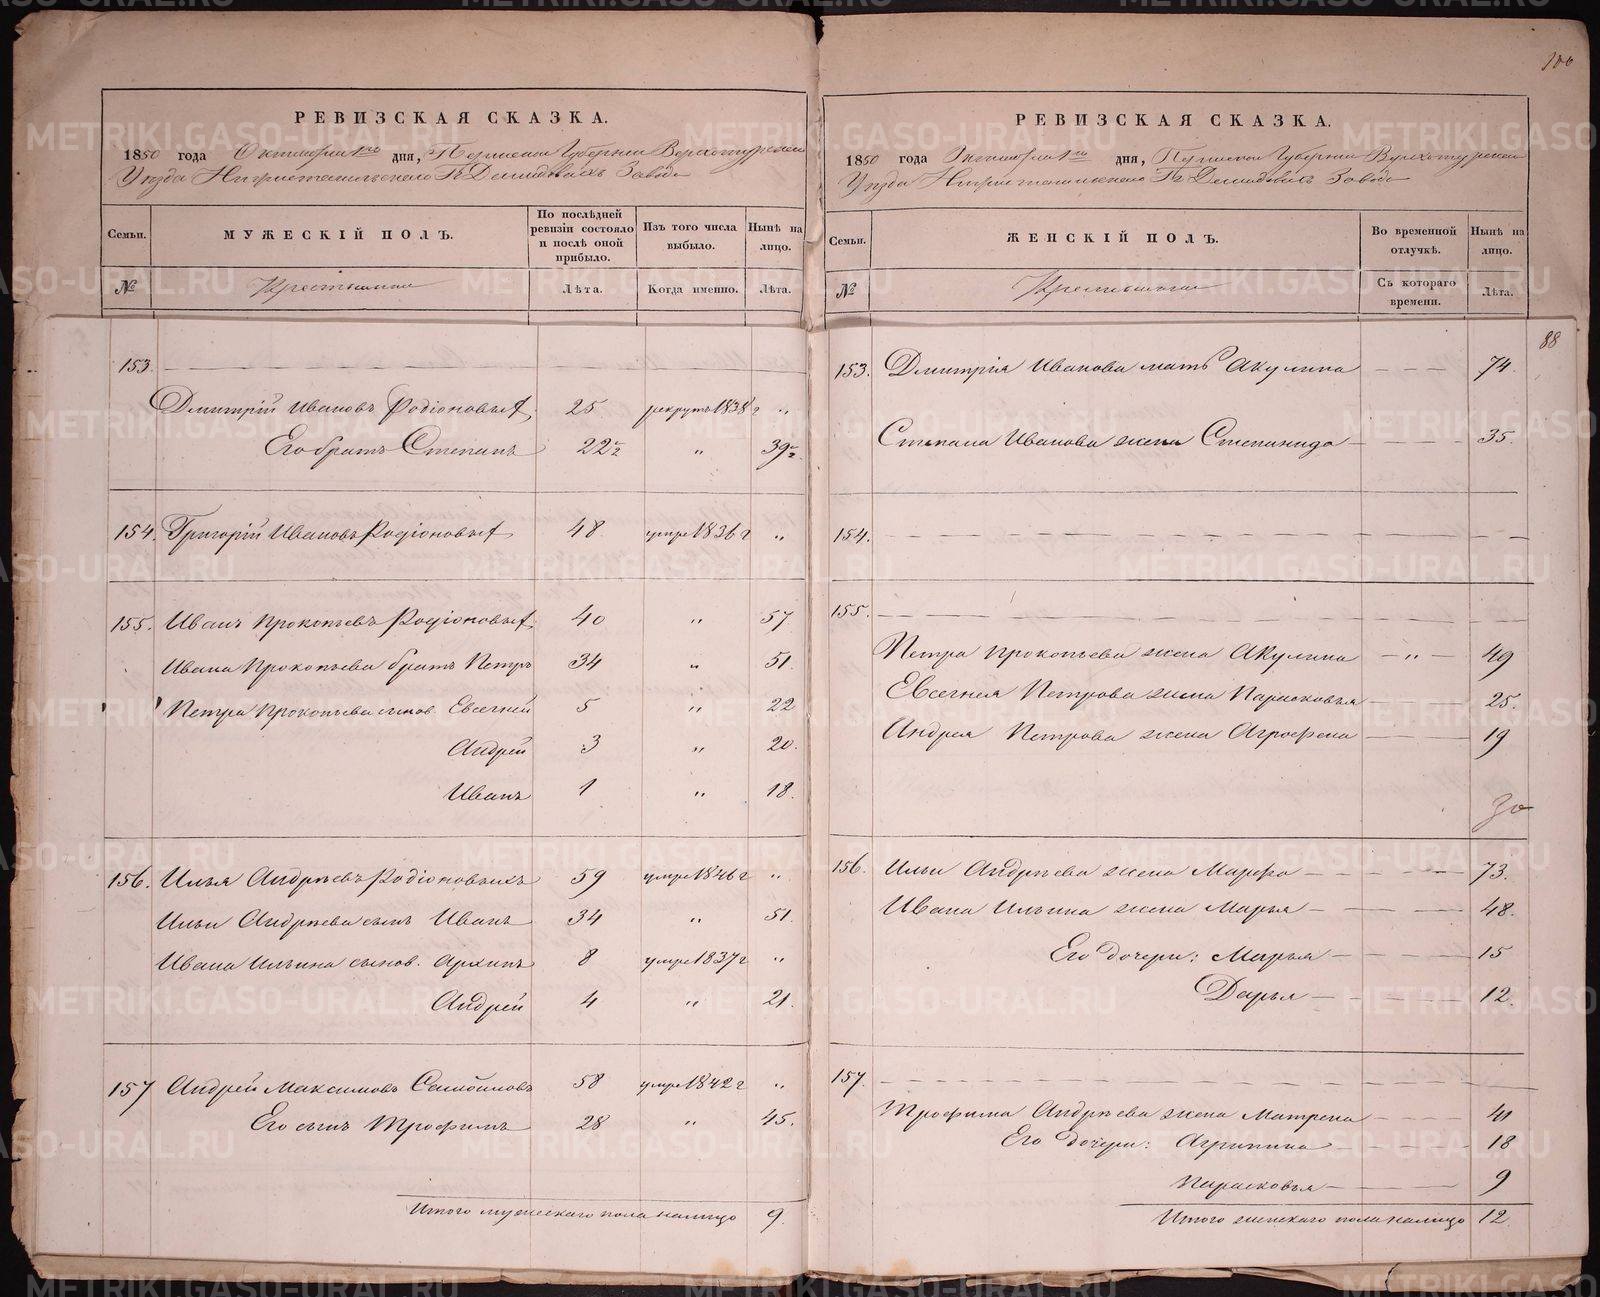 100
РЕВИЗСКАЯ СКАЗКА.
1850 года Октября 1го дня, Пермской Губернии Верхотурскаго
Уѣзда Нижнетагильскаго Гг Демидовыхъ Завода
Семьи. МУЖЕСКІЙ ПОЛЪ. По послѣдней ревизіи состояло и послѣ оной прибыло. Изъ того числа выбыло. Нынѣ на лицо.
№ Крестьяне Лѣта. Когда именно. Лѣта.
153.
Дмитрій Ивановъ Родіоновыхъ 25 рекрутъ 1838 г "
Его братъ Степанъ 22½ " 39½
154. Григорій Ивановъ Родіоновыхъ 48 умре 1836 г "
155. Иванъ Прокопьевъ Родіоновыхъ 40 " 57
Ивана Прокопьева братъ Петръ 34 " 51.
Петра Прокопьева сынов. Евсегней 5 " 22
Андрей 3 " 20.
Иванъ 1 " 18.
156. Илья Андрѣевъ Родіоновыхъ 59 умре 1846 г "
Ильи Андрѣева сынъ Иванъ 34 " 51.
Ивана Ильина сынов. Архипъ 8 умре 1837 г "
Андрей 4 " 21.
157 Андрей Максимовъ Самойловъ 58 умре 1842 г "
Его сынъ Трофимъ 28 " 45.
Итого мужескаго пола налицо 9.
РЕВИЗСКАЯ СКАЗКА.
1850 года Октября 1го дня, Пермской Губернии Верхотурскаго
Уѣзда Нижнетагильскаго Гг Демидовыхъ Завода
Семьи. ЖЕНСКІЙ ПОЛЪ. Во временной отлучкѣ. Нынѣ на лицо.
№ Крестьяне Съ котораго времени. Лѣта.
88
153. Дмитрія Иванова мать Акулина 74.
Степана Иванова жена Степанида 35.
154.
155.
Петра Прокопьева жена Акулина " 49
Евсегнея Петрова жена Парасковья 25.
Андрея Петрова жена Агрофена 19
156. Ильи Андрѣева жена Марфа 73.
Ивана Ильина жена Марья 48.
Его дочери: Марья 15
Дарья 12.
157.
Трофима Андрѣева жена Матрена 41
Его дочери: Агрипина 18
Парасковья 9
Итого женскаго пола налицо 12.
METRIKI.GASO-URAL.RU